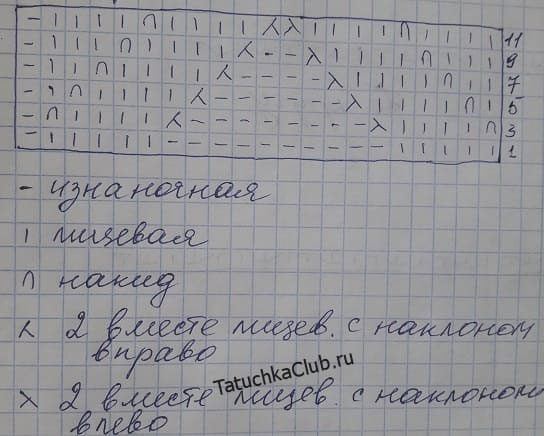 11
9
7
5
3
1
- изнаночная
ı лицевая
∩ накид
⋌ 2 вместе лицев. с наклоном
вправо
TatuchkaClub.ru
⋋ 2 вместе лицев. с наклоном
влево